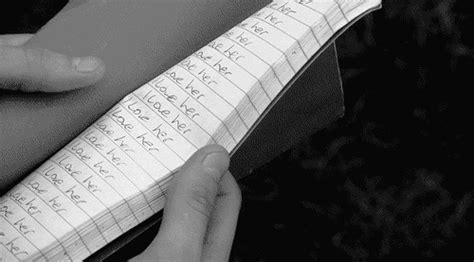 her
love her
love her
love her
love her
love her
I Love her
I Love her
I Love her
I Love her
I Love her
I Love her
I Love her
Love her
Love her
her